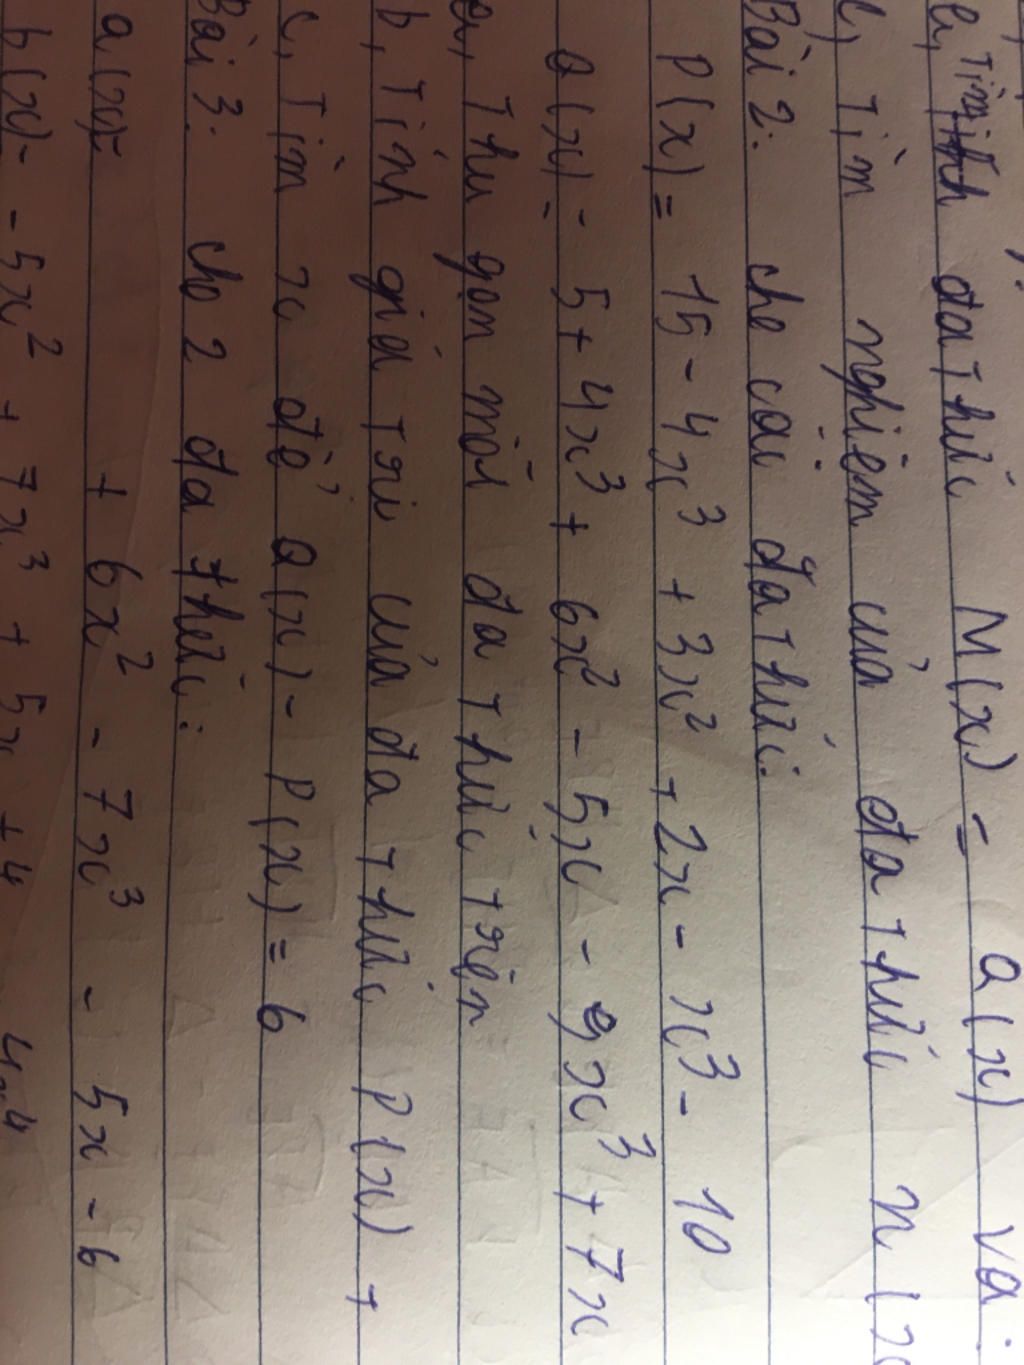 a, Tìm đa thức M(x) = a(x) và
c, Tìm nghiệm của đa thức n(x
Bài 2: cho các đa thức:
P(x) = 15 - 4x³ + 3x² + 2x - x³ - 10
Q(x) = 5 + 4x³ + 6x² - 5x - 9x³ + 7x
a, Thu gọn mỗi đa thức trên
b, Tính giá trị của đa thức P(x) +
c, Tìm x để Q(x) - P(x) = 6
Bài 3: cho 2 đa thức:
a(x) = + 6x² - 7x³ - 5x - 6
b(x) = - 5x² + 7x³ + 5x + 4